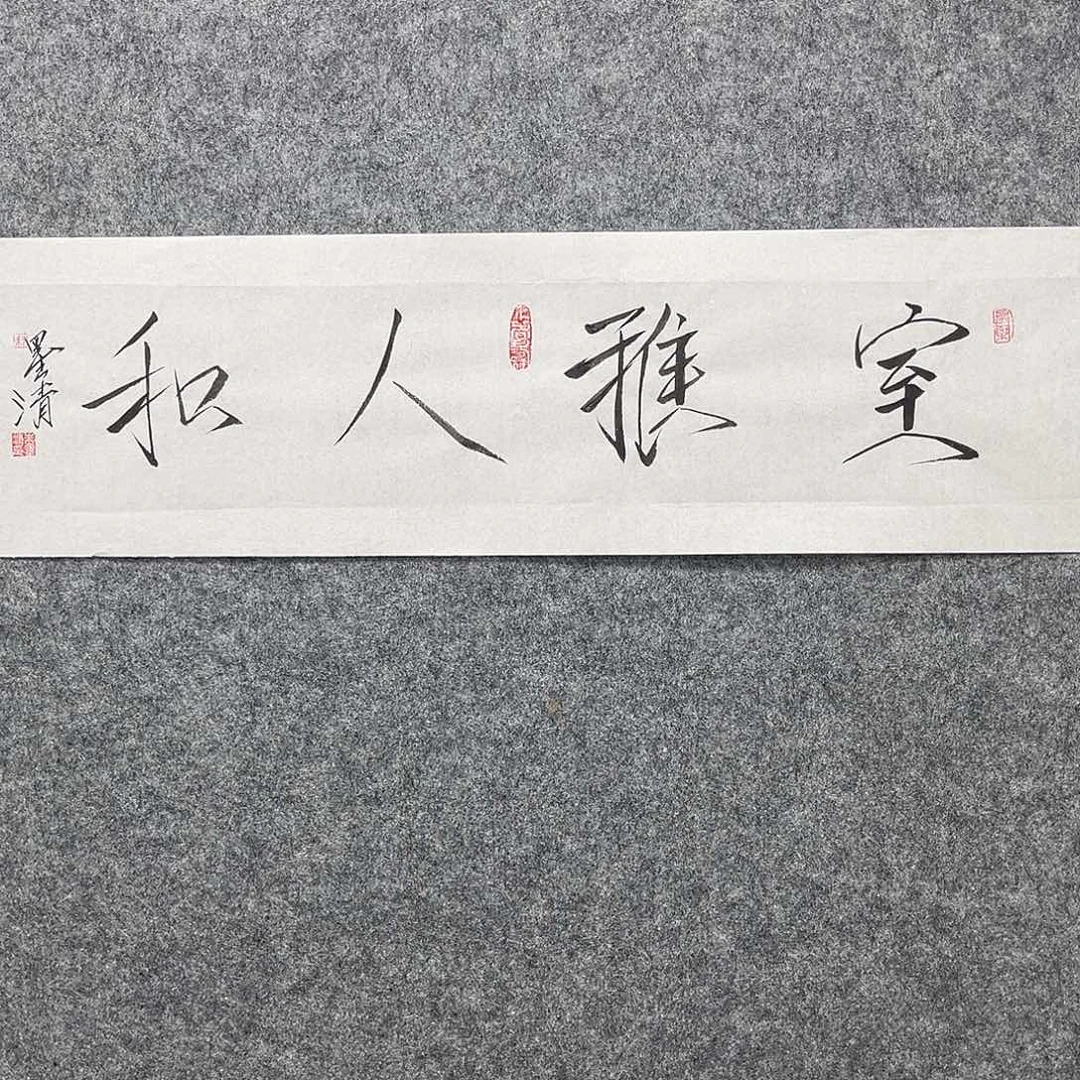 室雅人和
墨清